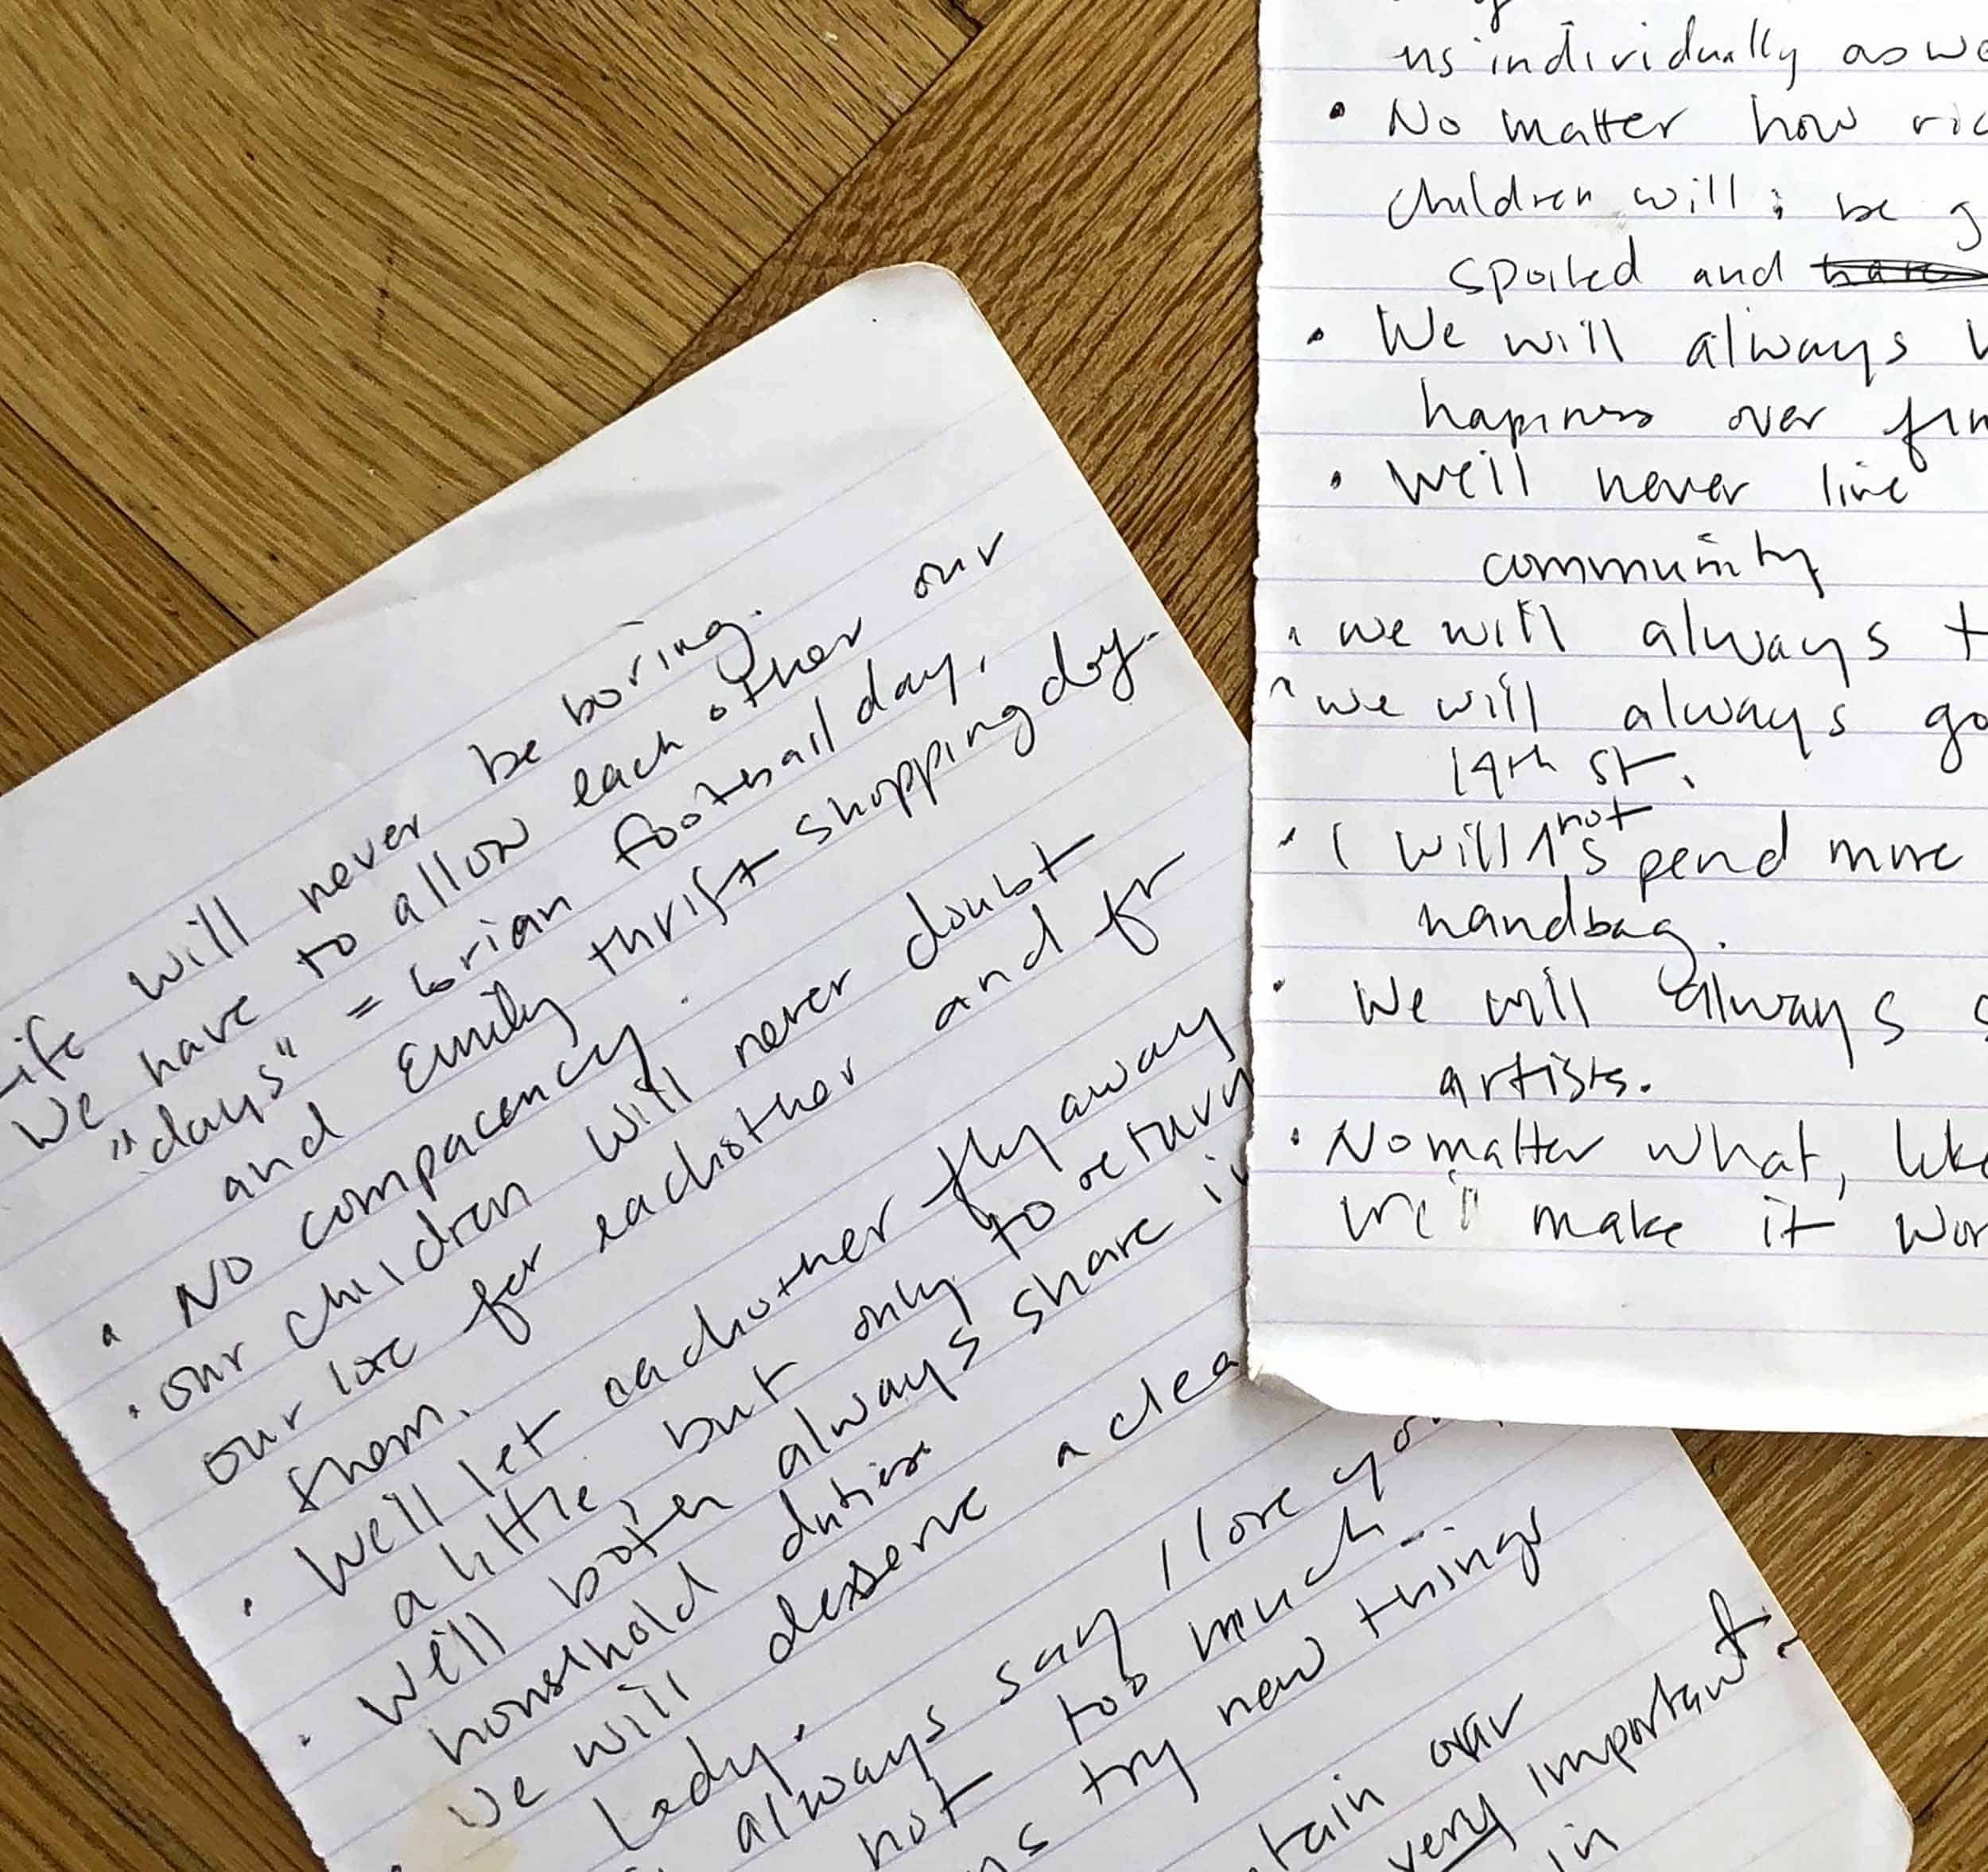 Life will never be boring.
We have to allow each other our
"days" = brian football day,
and Emily thrift shopping day.
• No compacency.
• our children will never doubt
our love for eachother and for
them.
• We'll let eachother fly away
a little, but only to return
• We'll both always share
household duties
We will deserve a clea
Lady.
always say I love you
not too much
try new things
tain our
very important
in
us individually as we
• No matter how ric
children will be g
spoiled and
• We will always
happiness over fin
• We'll never live
community
• we will always t
• we will always go
14th St.
• I will not spend more
handbag.
• We will always s
artists.
• No matter what, like
We'll make it wor